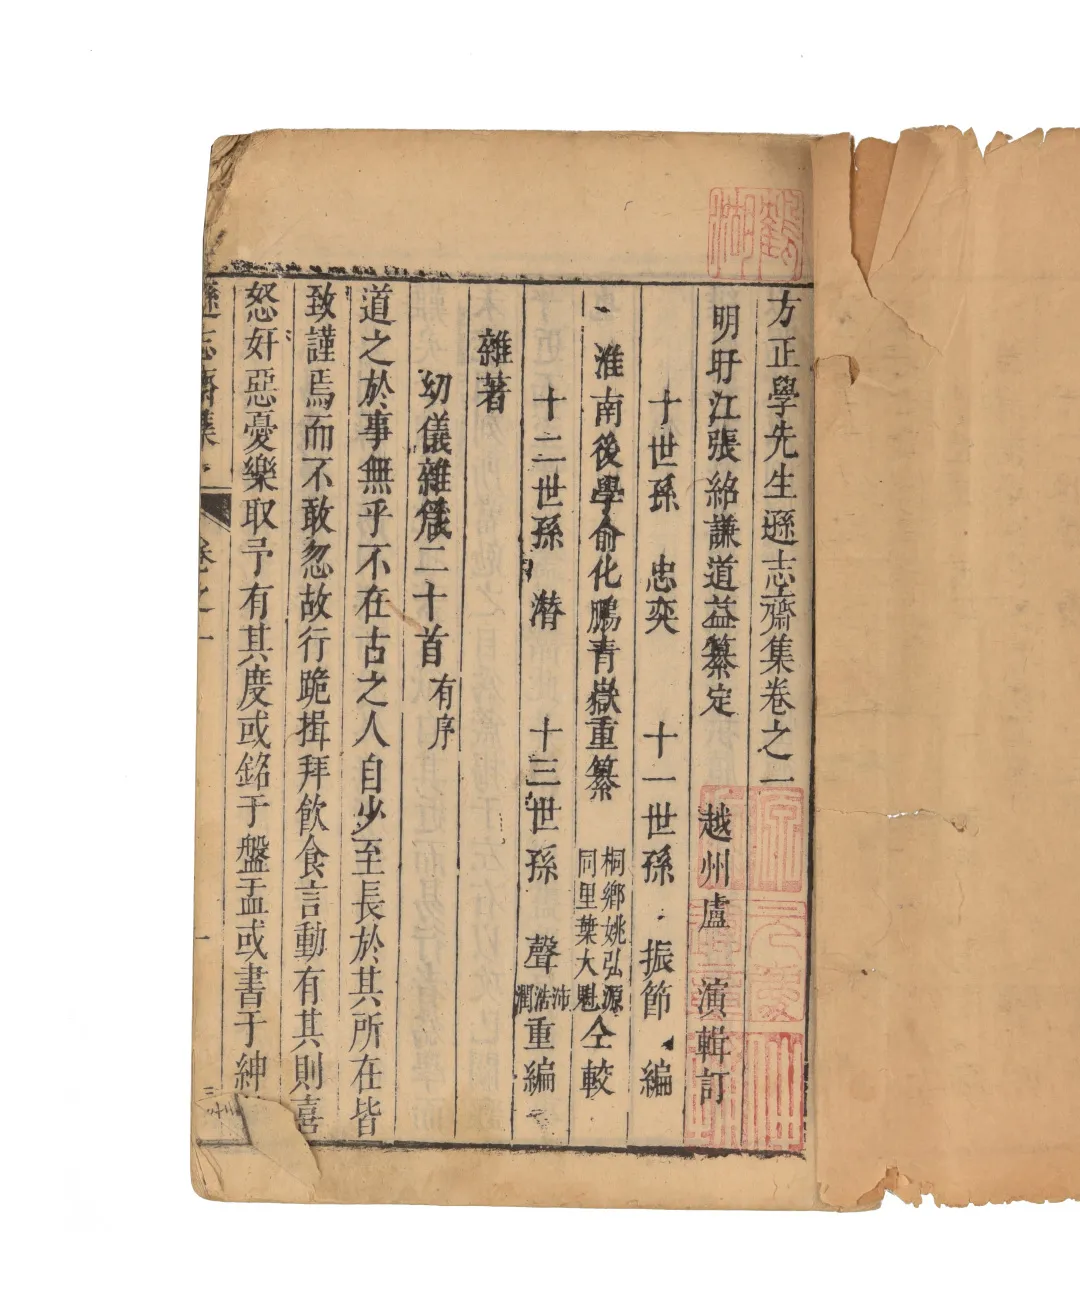 方正學先生遜志齋集卷之一
明盱江張紹謙道益纂定 越州盧 演輯訂
十世孫 忠奕 十一世孫 振節 編
淮南後學俞化鵬青嶽重纂 桐鄉姚弘源 同里葉大魁 仝較
十二世孫 潛 十三世孫 聲 沛 浩 潤 重編
雜著
幼儀雜儀二十首 有序
道之於事無乎不在古之人自少至長於其所在皆
致謹焉而不敢忽故行跪揖拜飲食言動有其則喜
怒奸惡憂樂取予有其度或銘于盤盂或書于紳
遜志齋集
卷之一
一